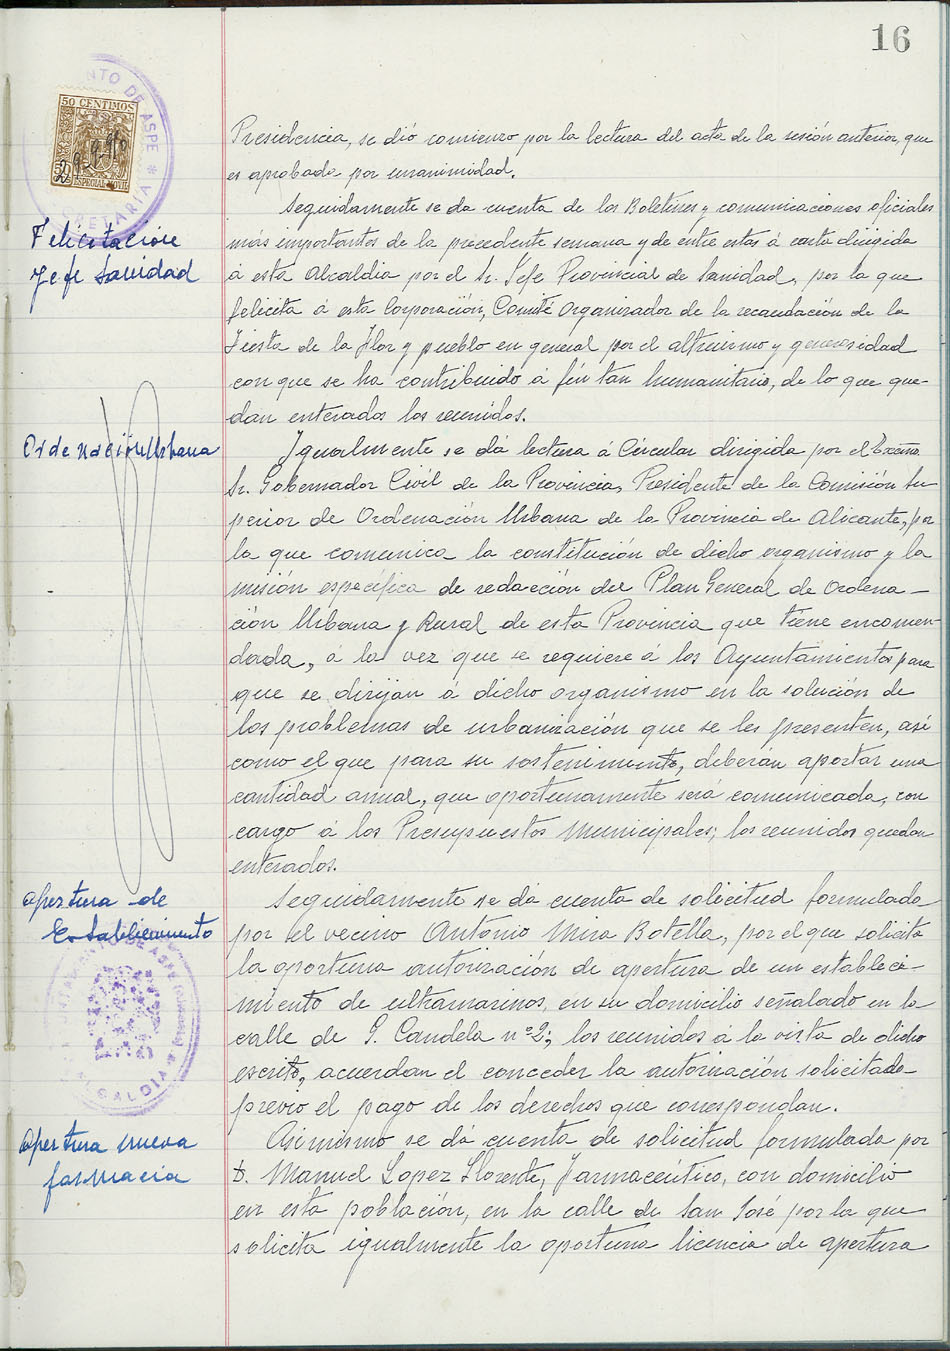 16
NTO DE ASPE *
SECRETARIA
50 CENTIMOS
ESPECIAL MOVIL
Presidencia, se dió comienzo por la lectura del acta de la sesión anterior, que
es aprobada por unanimidad.
Felicitación
Jefe Sanidad
Seguidamente se da cuenta de los Boletines y comunicaciones oficiales
más importantes de la precedente semana y de entre estas á carta dirigida
á esta Alcaldia por el Sr. Jefe Provincial de Sanidad, por la que
felicita á esta Corporación, Comité Organizador de la recaudación de la
Fiesta de la Flor y pueblo en general por el altruismo y generosidad
con que se ha contribuido á fin tan humanitario, de lo que que-
dan enterados los reunidos.
Ordenación Urbana
Igualmente se dá lectura á Circular dirigida por el Excmo
Sr. Gobernador Civil de la Provincia, Presidente de la Comisión Su
perior de Ordenación Urbana de la Provincia de Alicante, por
la que comunica la constitución de dicho organismo y la
misión específica de redacción del Plan General de Ordena-
ción Urbana y Rural de esta Provincia que tiene encomen-
dada, á la vez que se requiere á los Ayuntamientos para
que se dirijan á dicho organismo en la solución de
los problemas de urbanización que se les presenten, asi
como el que para su sostenimiento, deberán aportar una
cantidad anual, que oportunamente será comunicada, con
cargo á los Presupuestos Municipales; los reunidos quedan
enterados.
Apertura de
Establecimiento
Seguidamente se dá cuenta de solicitud formulada
por el vecino Antonio Mira Botella, por el que solicita
la oportuna autorización de apertura de un estableci-
miento de ultramarinos, en su domicilio señalado en la
calle de G. Candela nº 2; los reunidos á la vista de dicho
escrito, acuerdan el conceder la autorización solicitada
previo el pago de los derechos que correspondan.
ALCALDIA
Apertura nueva
farmacia
Asimismo se dá cuenta de solicitud formulada por
D. Manuel Lopez Llorente, Farmacéutico, con domicilio
en esta población, en la calle de San José por la que
solicita igualmente la oportuna licencia de apertura